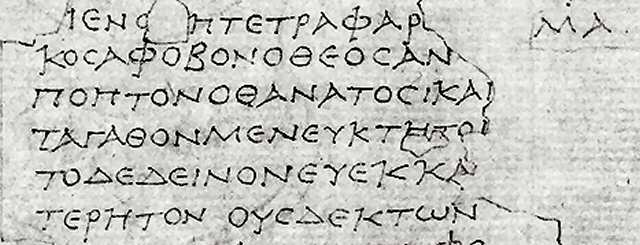 ΙΕΝΟ ΗΤΕΤΡΑΦΑΡ ΜΑ
ΚΟϹΑΦΟΒΟΝΟΘΕΟϹΑΝ
ΠΟΠΤΟΝΟΘΑΝΑΤΟϹΙΚΑΙ
ΤΑΓΑΘΟΝΜΕΝΕΥΚΤΗΤΟ
ΤΟΔΕΔΕΙΝΟΝΕΥΕΚΚΑ
ΤΕΡΗΤΟΝ ΟΥϹΔΕΚΤΩΝ